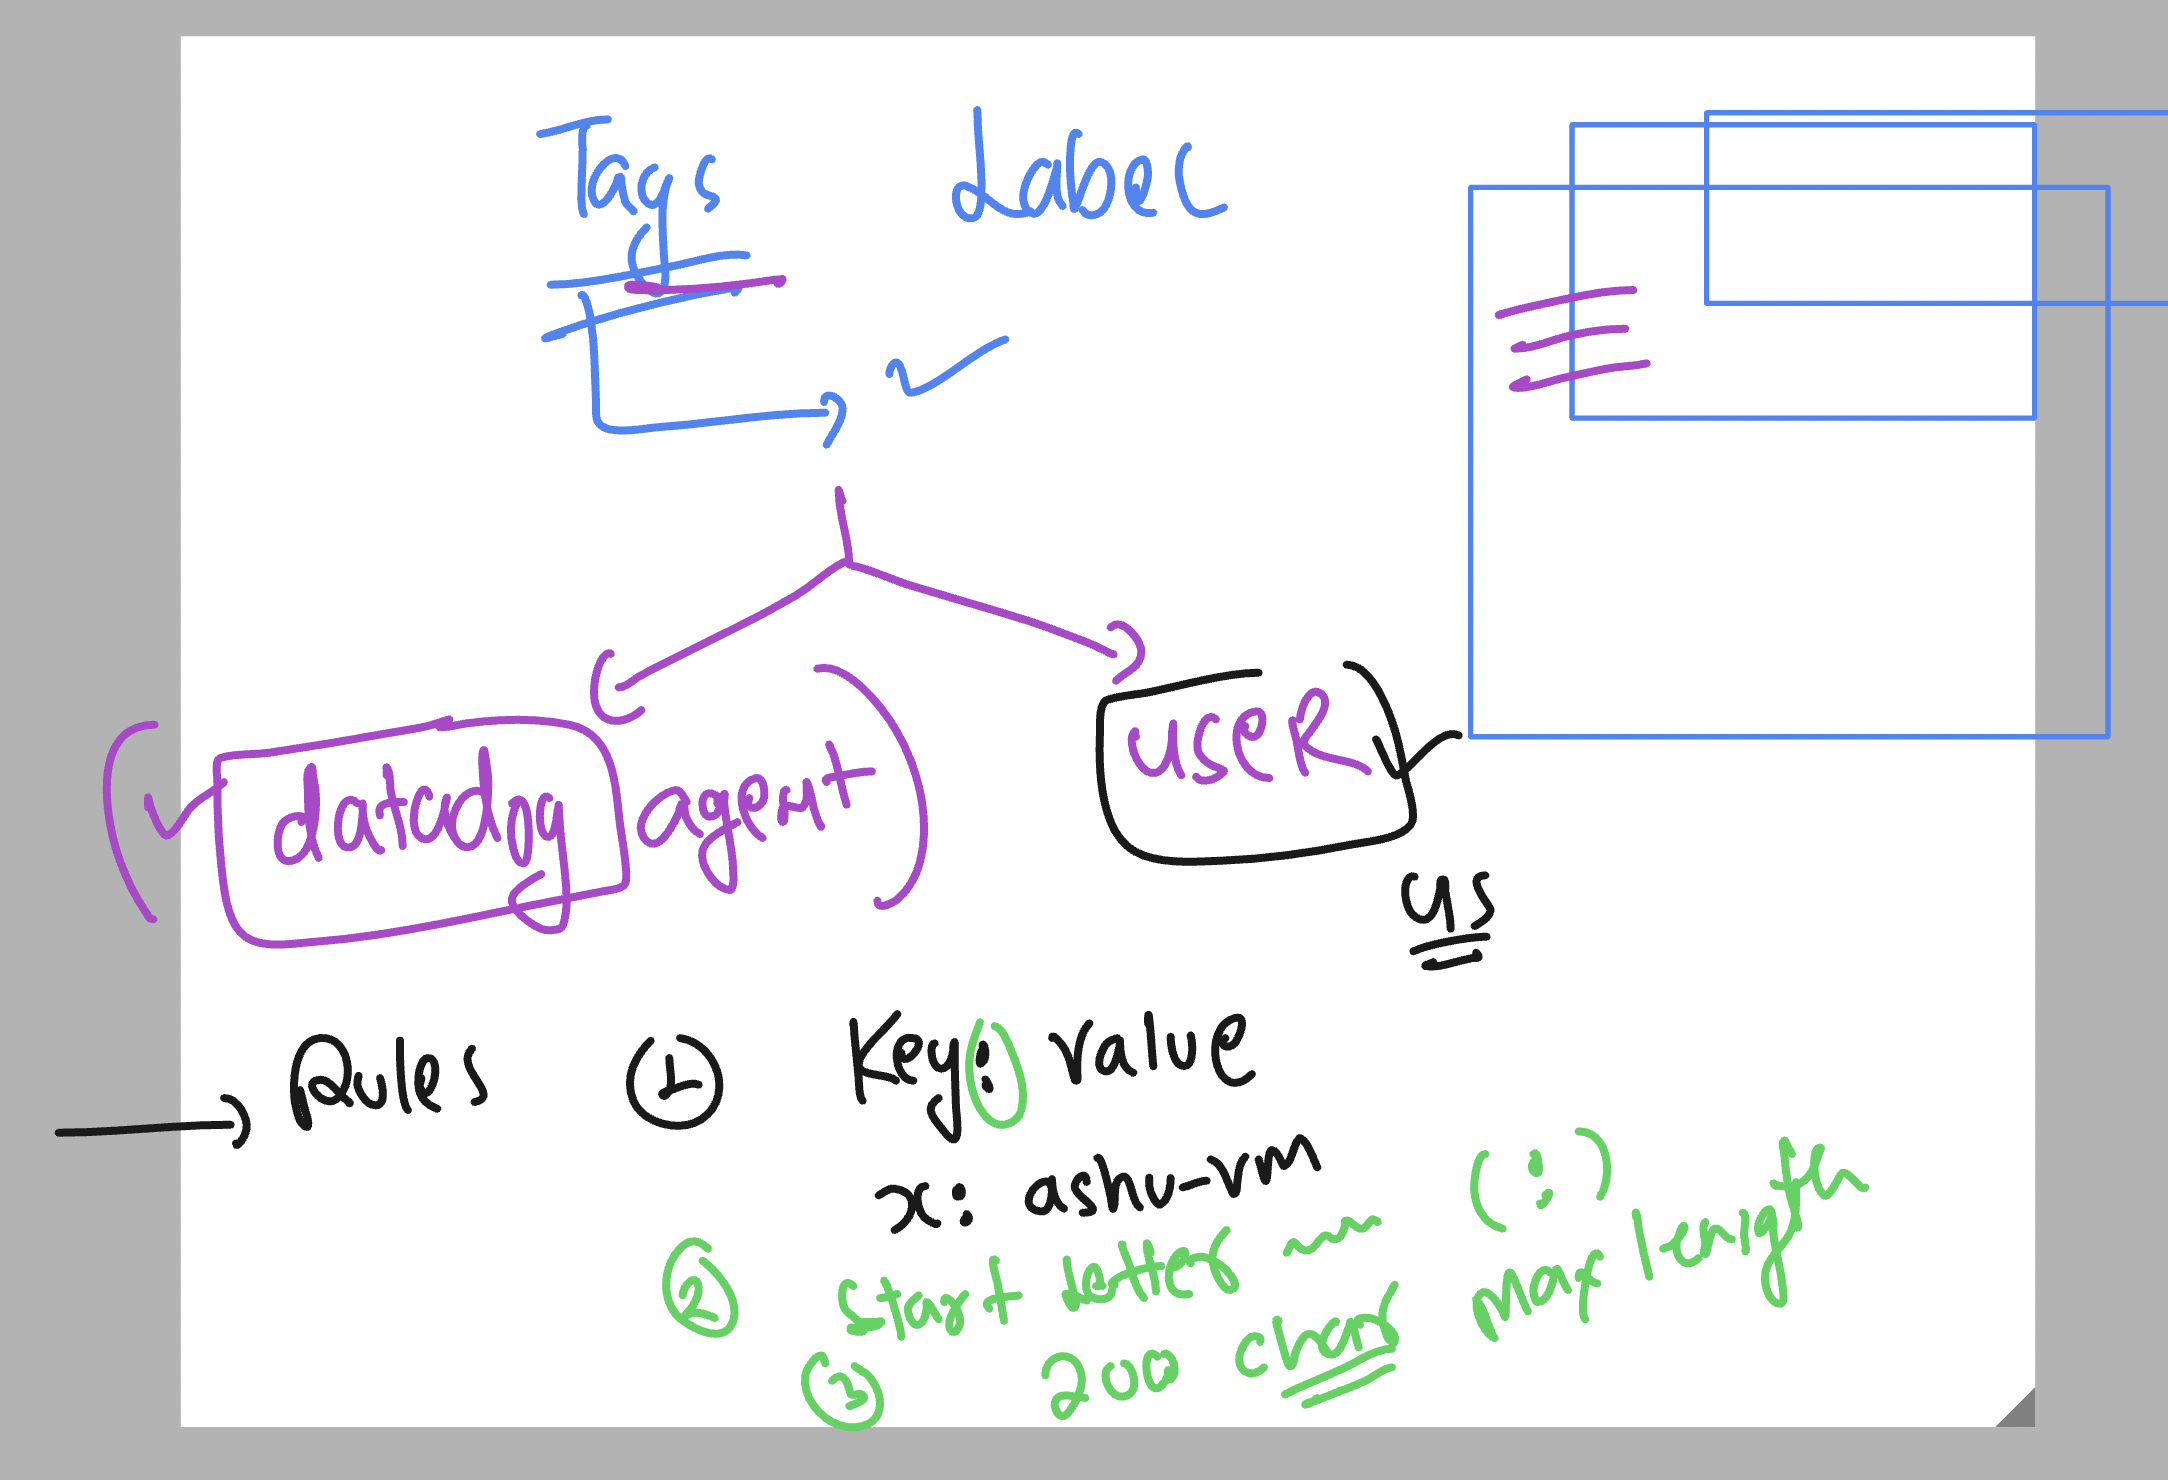 Tags Label
datadog agent
useR
us
Rules ① Key: value
x: ashu-vm
② start letter (:)
③ 200 char max length